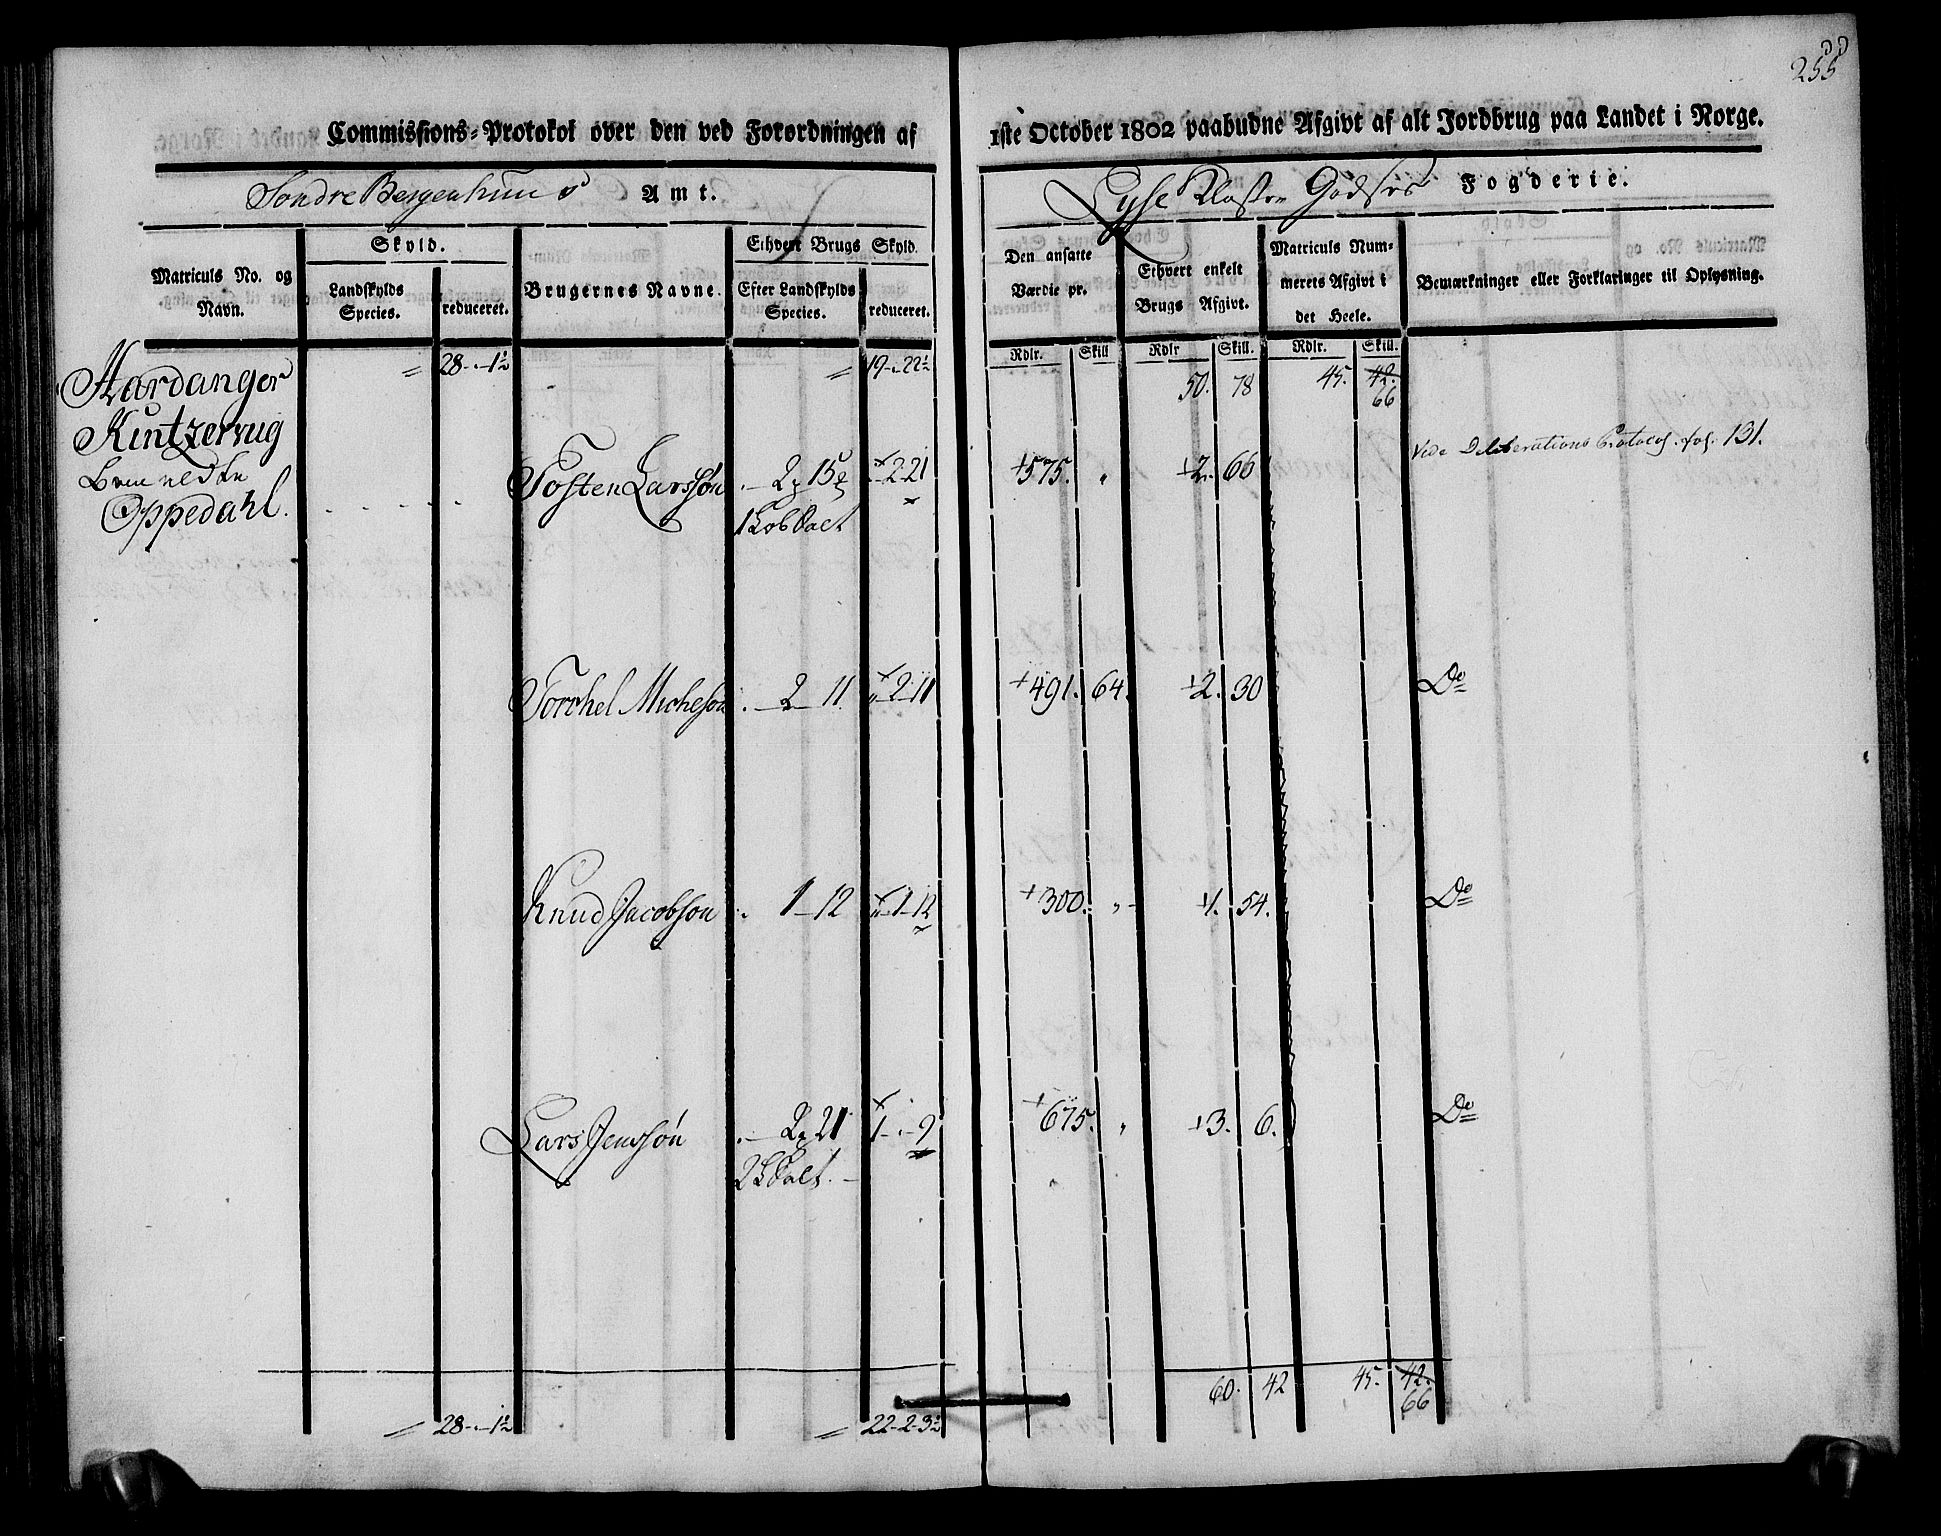 255
Commissions-Protokol over den ved Forordningen af 1ste October 1802 paabudne Afgivt af alt Jordbrug paa Landet i Norge.
Søndre Bergenhuus Amt. Lyse Kloster Godses Fogderie.
Matriculs No. og Navn.
Skyld.
Landskylds Species.
reduceret.
Brugernes Navne.
Ethvert Brugs Skyld.
Efter Landskylds Species.
reduceret.
Den ansatte Værdie pr.
Ethvert enkelt Brugs Afgivt.
Matriculs Nummerets Afgivt i det Heele.
Bemærkninger eller Forklaringer til Oplysning.
Rdlr. Skill Rdlr Skill. Rdlr. Skill.
28 - 1½ 19 - 22½ 50. 78 45. 42. 66
Hardanger
Kintzervug
Bemeldte
Oppedahl.
Tosten Larssøn 2 15 2-21 +575. " +2. 66 Vide Deliberations Protocol. fol. 131.
1 Løb Salt
Torchel Michelson 2 - 11 2-11 +491. 64. +2. 30 Do
Knud Jacobsøn 1-12 1-12 +300. " +1. 54. Do
Lars Jenssøn 2 21 1 - 9 +675. " +3. 6. Do
2 L Salt.
60. 42 45. 42. 66
28 - 1½ 22-2-3½